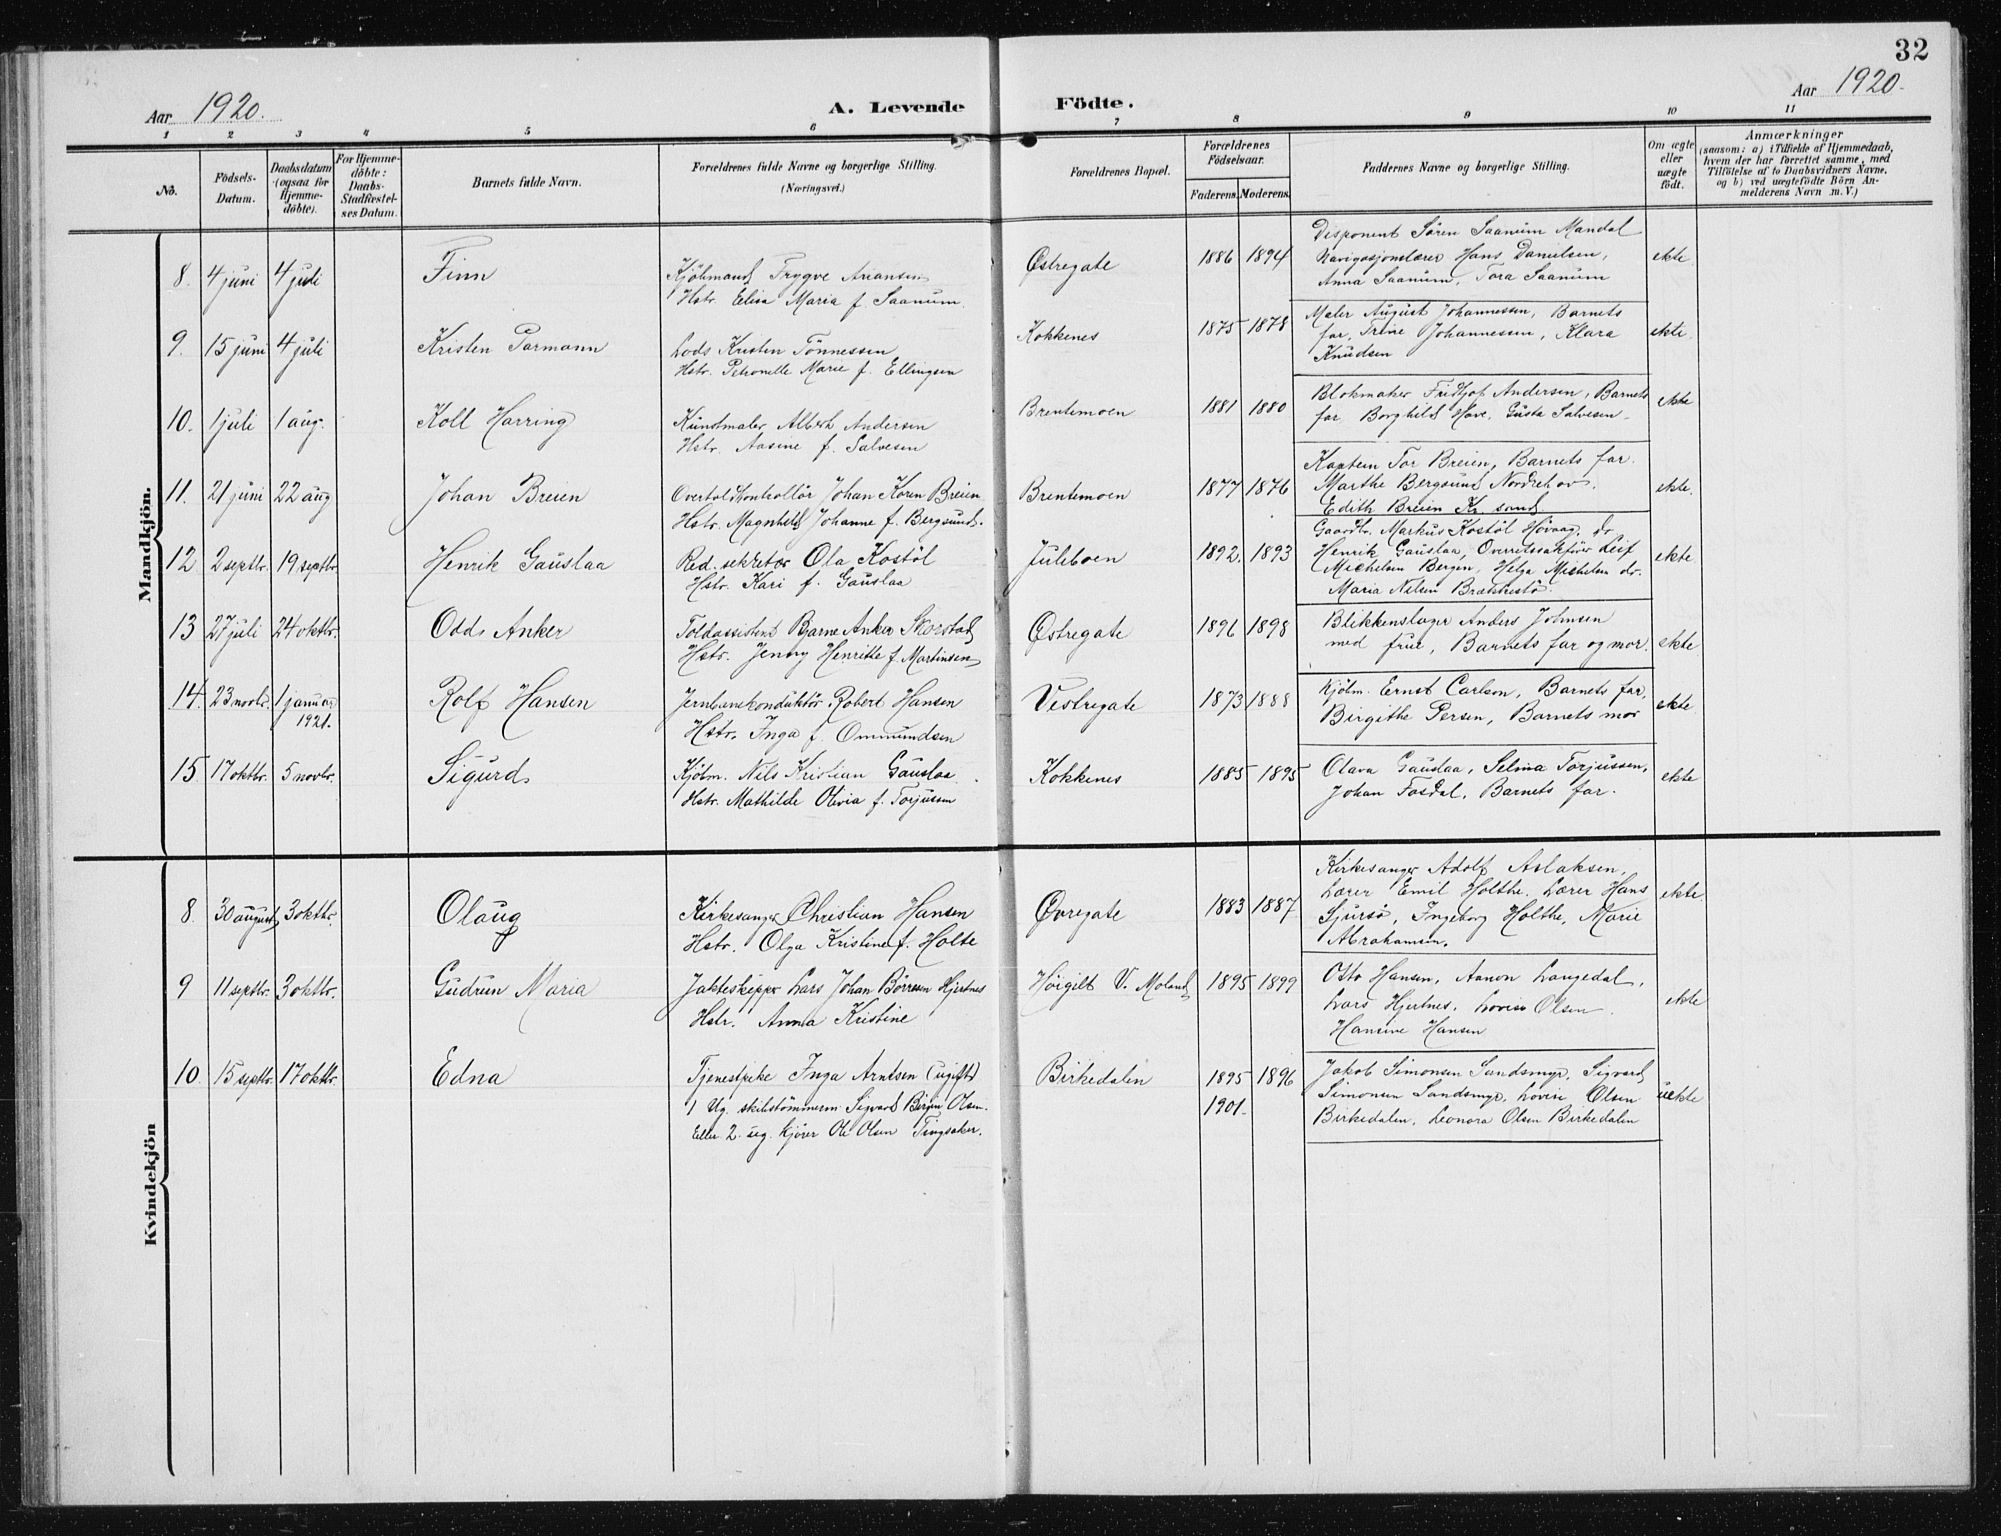 32
Aar 1920.
A. Levende
Födte.
Aar 1920.
1 2 3 4 5 6 7 8 9 10 11
No.
Födsels-
Datum.
Daabsdatum
(ogsaa for
Hjemme-
döbte).
For Hjemme-
döbte:
Daabs-
Stadfæstel-
ses Datum.
Barnets fulde Navn.
Forældrenes fulde Navne og borgerlige Stilling.
(Næringsvei.)
Forældrenes Bopæl.
Forældrenes
Födselsaar.
Faderens. Moderens.
Faddernes Navne og borgerlige Stilling.
Om ægte
eller
uægte
födt.
Anmærkninger
(saasom: a) i Tilfælde af Hjemmedaab,
hvem der har forrettet samme, med
Tilföielse af to Daabsvidners Navne,
og b) ved uægtefödte Börn An-
melderens Navn m. V.)
Mandkjön.
8. 4 juni 4 juli Finn
Kjöbmand Trygve Arians­en
Hstr. Elisa Maria f. Saanum.
Østregate 1886 1894
Disponent Sören Saanum Mandal
Navigasjonslærer Hans Danielsen,
Anna Saanum, Tora Saanum
ekte.
9. 15 juni 4 juli Kristen Parmann
Lods Kristen Tönnessen
Hstr. Petronelle Marie f. Ellingsen
Kokkenes 1875 1878
Maler August Johannessen, Barnets
far, Trine Johannessen, Klara
Knudsen
ekte.
10. 1 juli 1 aug. Koll Harring
Kunstmaler Albert Andersen
Hstr. Aasine f. Salvesen
Brentemoen 1881 1880
Blokmaker Fridtjof Andersen, Barnets
far Borghild Hove, Gusta Salvesen
ekte
11. 21 juni 22 aug Johan Breien
Overtoldkontrollör Johan Koren Breien
Hstr. Magnhild Johanne f. Bergsund.
Brentemoen 1877 1876
Kaptein Tor Breien, Barnets far.
Marthe Bergsund Nordrehov.
Edith Breien Kr. sand
ekte.
12. 2 septbr. 19 septbr. Henrik Gauslaa
Red. sekretær Ola Kostöl
Hstr. Kari f. Gauslaa
Juleboen 1892. 1893
Gaardbr. Markus Kostöl Hövaag, dr
Henrik Gauslaa, Overretssakförer Leif
Michelsen Bergen, Helga Michelsen do.
Maria Nilsen Brækkestö.
ekte
13 27 juli 24 oktbr. Odd Anker
Toldassistent Bjarne Anker Skorstad
Hstr. Jenny Henritte f. Martinsen
Østregate 1896 1898
Blikkenslager Anders Johnsen
med frue, Barnets far og mor.
ekte
14. 23 novbr. 1 januar
1921.
Rolf Hansen
Jernbanekonduktör Robert Hansen
Hstr. Inga f. Ommundsen
Vestregate 1873 1888
Kjöbm. Ernst Carlson, Barnets far,
Birgithe Persen, Barnets mor
ekte
15. 17 oktbr. 5 novbr. Sigurd
Kjöbm. Nils Kristian Gauslaa
Hstr. Mathilde Olivia f. Torjussen
Kokkenes 1885 1895
Olava Gauslaa, Selma Torjussen,
Johan Fosdal, Barnets far.
ekte
Kvindekjön
8. 30 august 3 oktbr. Olaug
Kirkesanger Christian Hansen
Hstr. Olga Kristine f. Holte
Øvregate 1883 1887
Kirkesanger Adolf Aslaksen,
Lærer Emil Holthe, Lærer Hans
Sjursö, Ingeborg Holthe, Marie
Abrahamsen.
ekte
9 11 septbr. 3 oktbr. Gudrun Maria
Jakteskipper Lars Johan Börresen Hjertnes
Hstr. Anna Kristine
Höigilt V. Moland 1895 1899
Otto Hansen, Aanon Langedal,
Lars Hjertnes, Lovise Olsen
Hansine Hansen
ekte
10 15 septbr. 17 oktbr. Edna
Tjenestpike Inga Arntsen (ugift)
1 Ug. skibstömmerm Sigvard Birger Olsen.
Eller 2. ug. kjörer Ole Olsen Tingsaker.
Birkedalen 1895 1896
1901.
Jakob Simonsen Sandsmyr, Sigvard
Simonsen Sandsmyr, Lovise Olsen
Birkedalen, Leonora Olsen Birkedalen
uekte